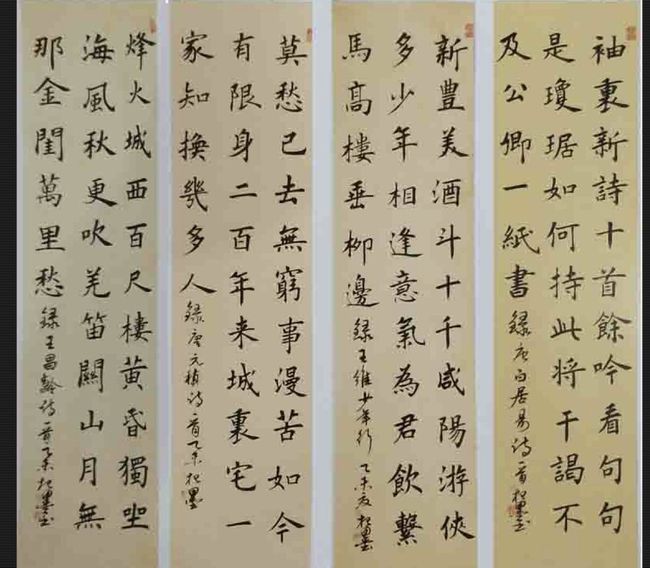 袖裏新詩十首餘吟看句句
是瓊琚如何持此将干謁不
及公卿一紙書 録唐白居易诗一首松墨
新豐美酒斗十千咸陽游俠
多少年相逢意氣為君飲繫
馬高樓垂柳邊 録王維少年行 乙未夏松墨
莫愁已去無窮事漫苦如今
有限身二百年来城裏宅一
家知換幾多人 録唐元稹诗一首乙未松墨
烽火城西百尺樓黄昏獨坐
海風秋更吹羌笛關山月無
那金閨萬里愁 録王昌齡诗一首乙未松墨书